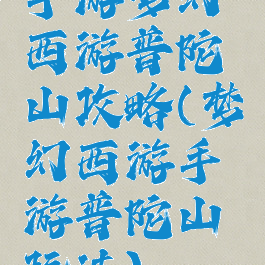 手游梦幻
西游普陀
山攻略(梦
幻西游手
游普陀山